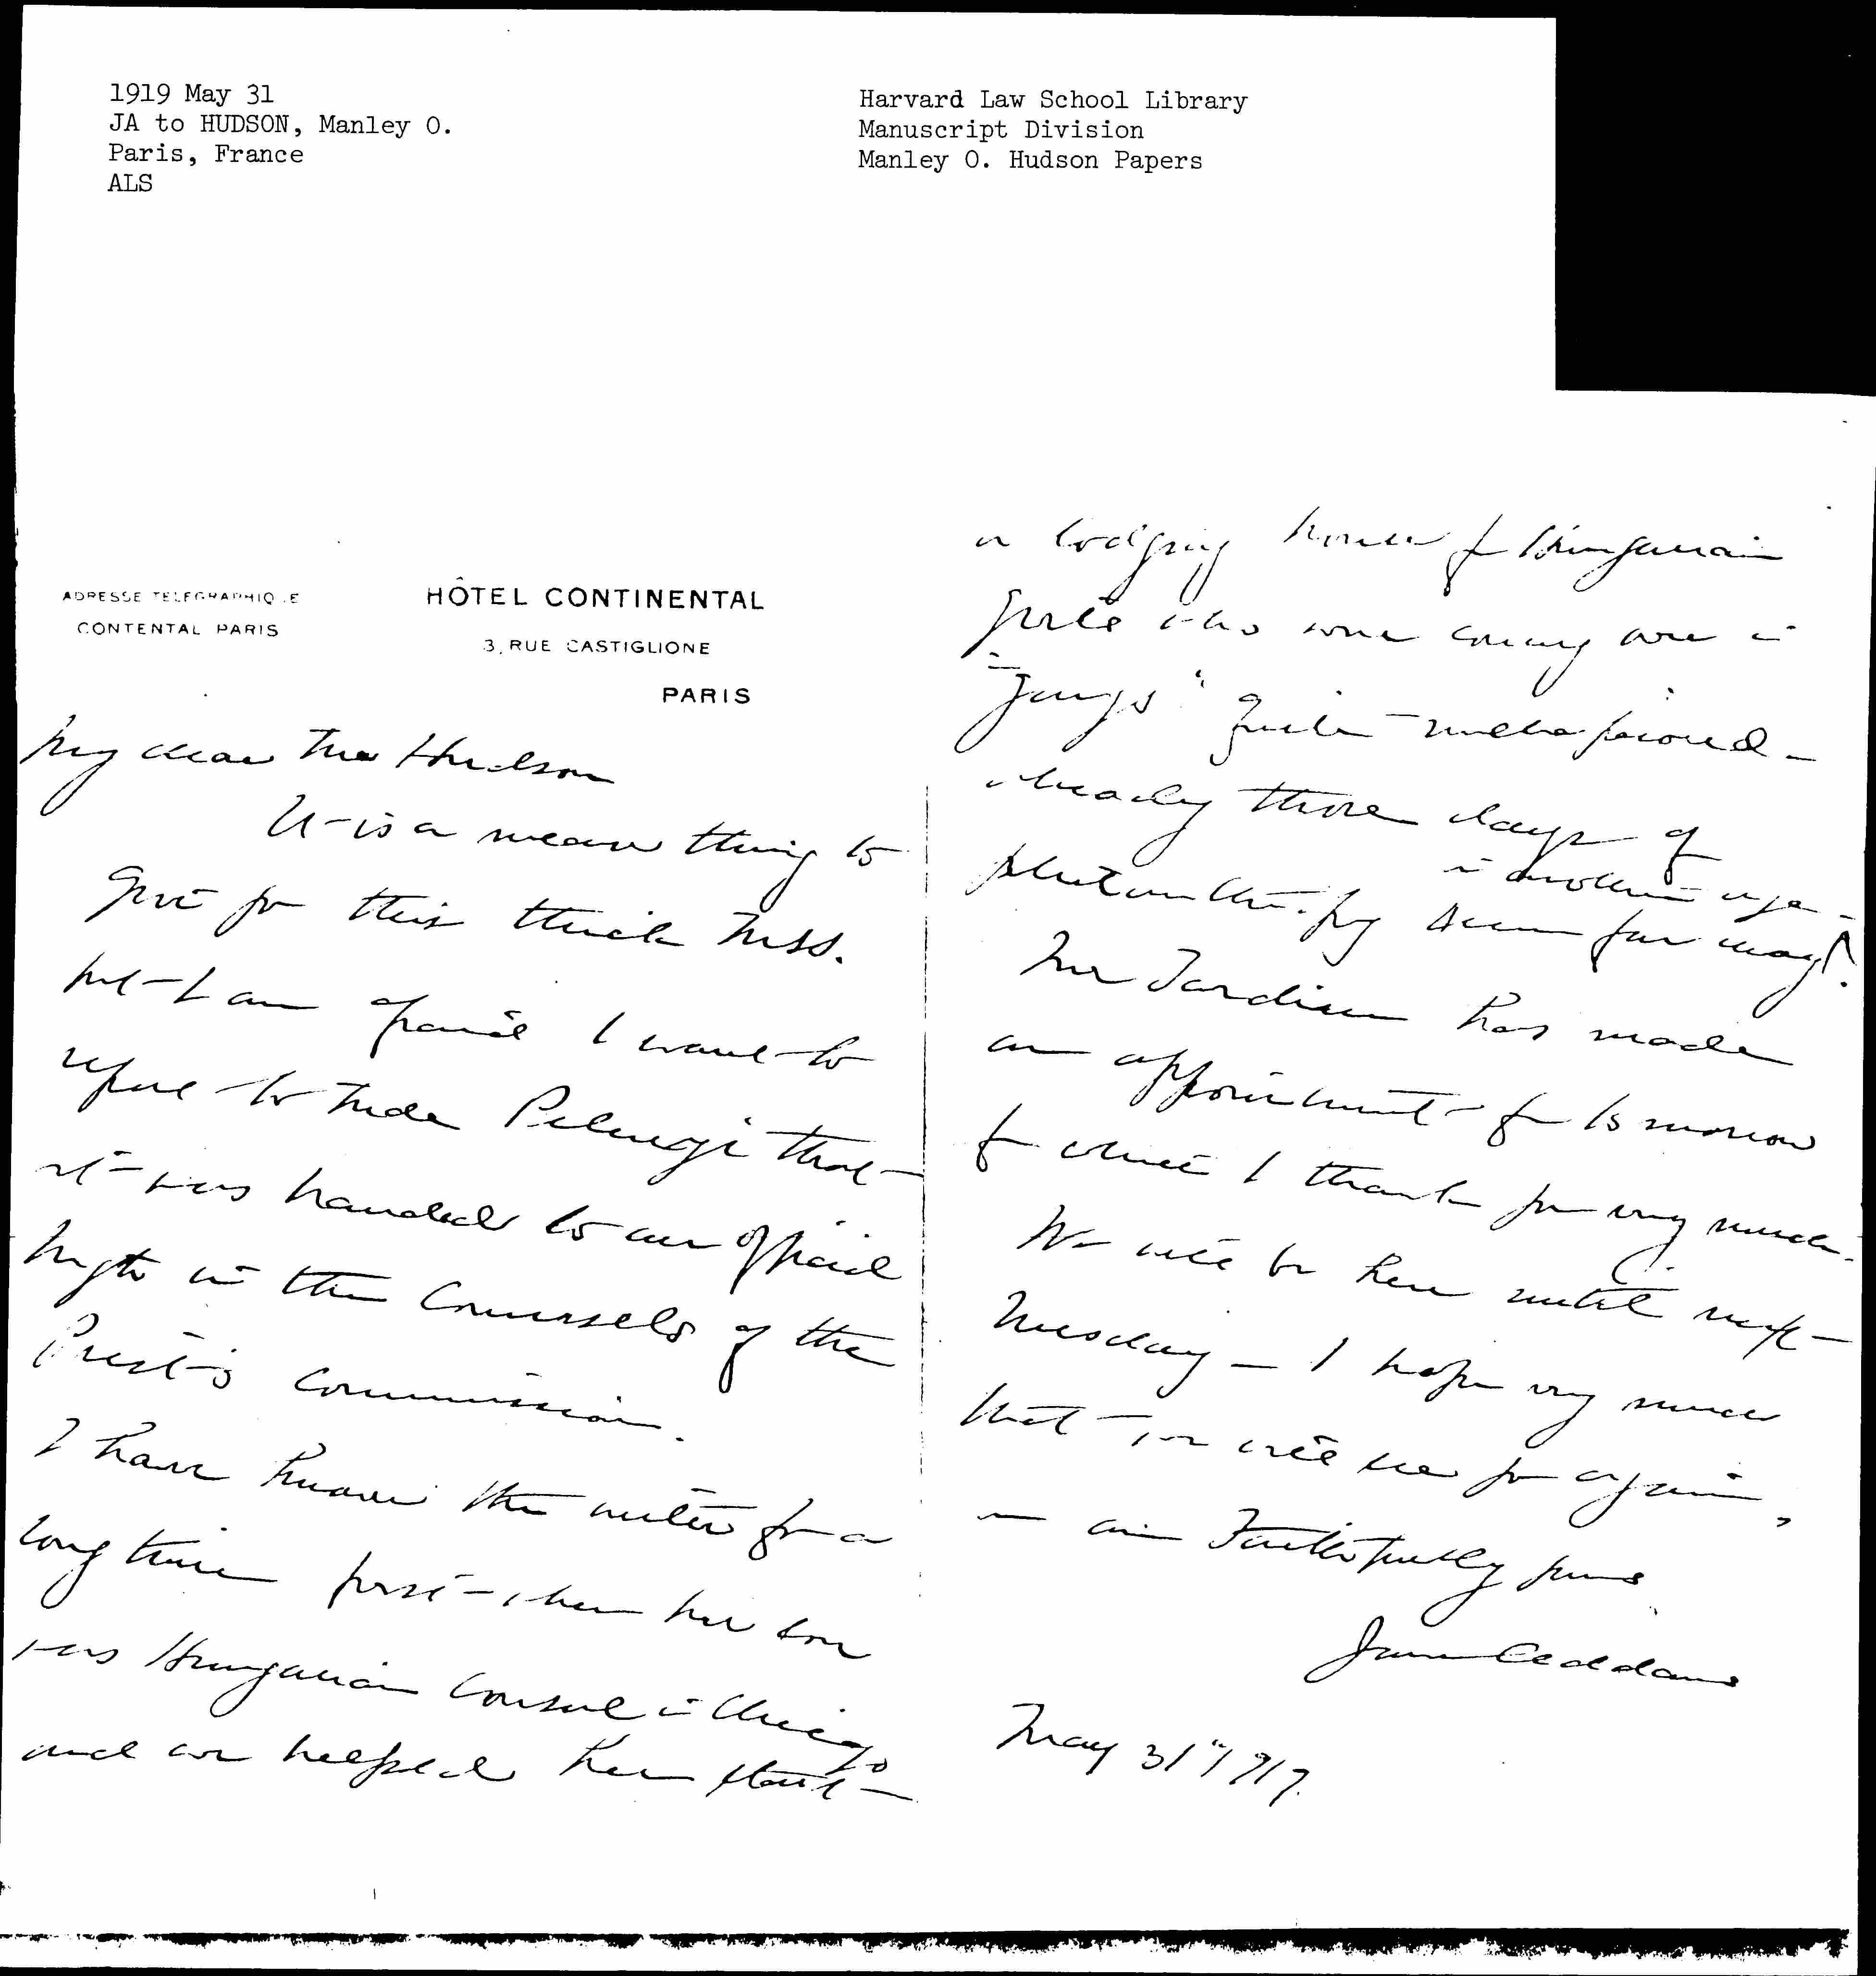 1919 May 31
JA to HUDSON, Manley O.
Paris, France
ALS
Harvard Law School Library
Manuscript Division
Manley O. Hudson Papers
ADRESSE TELEGRAPHIQUE
CONTENTAL PARIS
HÔTEL CONTINENTAL
3, RUE CASTIGLIONE
PARIS
My dear Mr Hudson
It is a mean thing to
give you this thick Mss.
but I am afraid I want to
report to Mde Pelenyi that
it was handed to an official
high in the Counsels of the
Prest's Commission.
I have known the writer for a
long time first when her son
was Hungarian Consul in Chicago
and we helped her start
a lodging house for Hungarian
girls who were coming over in
"gangs" quite unchaperoned -
already those days of
philanthropy seem far away
in another age!
Mr Tardieu has made
an appointment for tomorrow
for which I thank you very much.
We will be here until next
Tuesday - I hope very much
that we will see you again,
am Faithfully yours
Jane Addams
May 31" 1919.